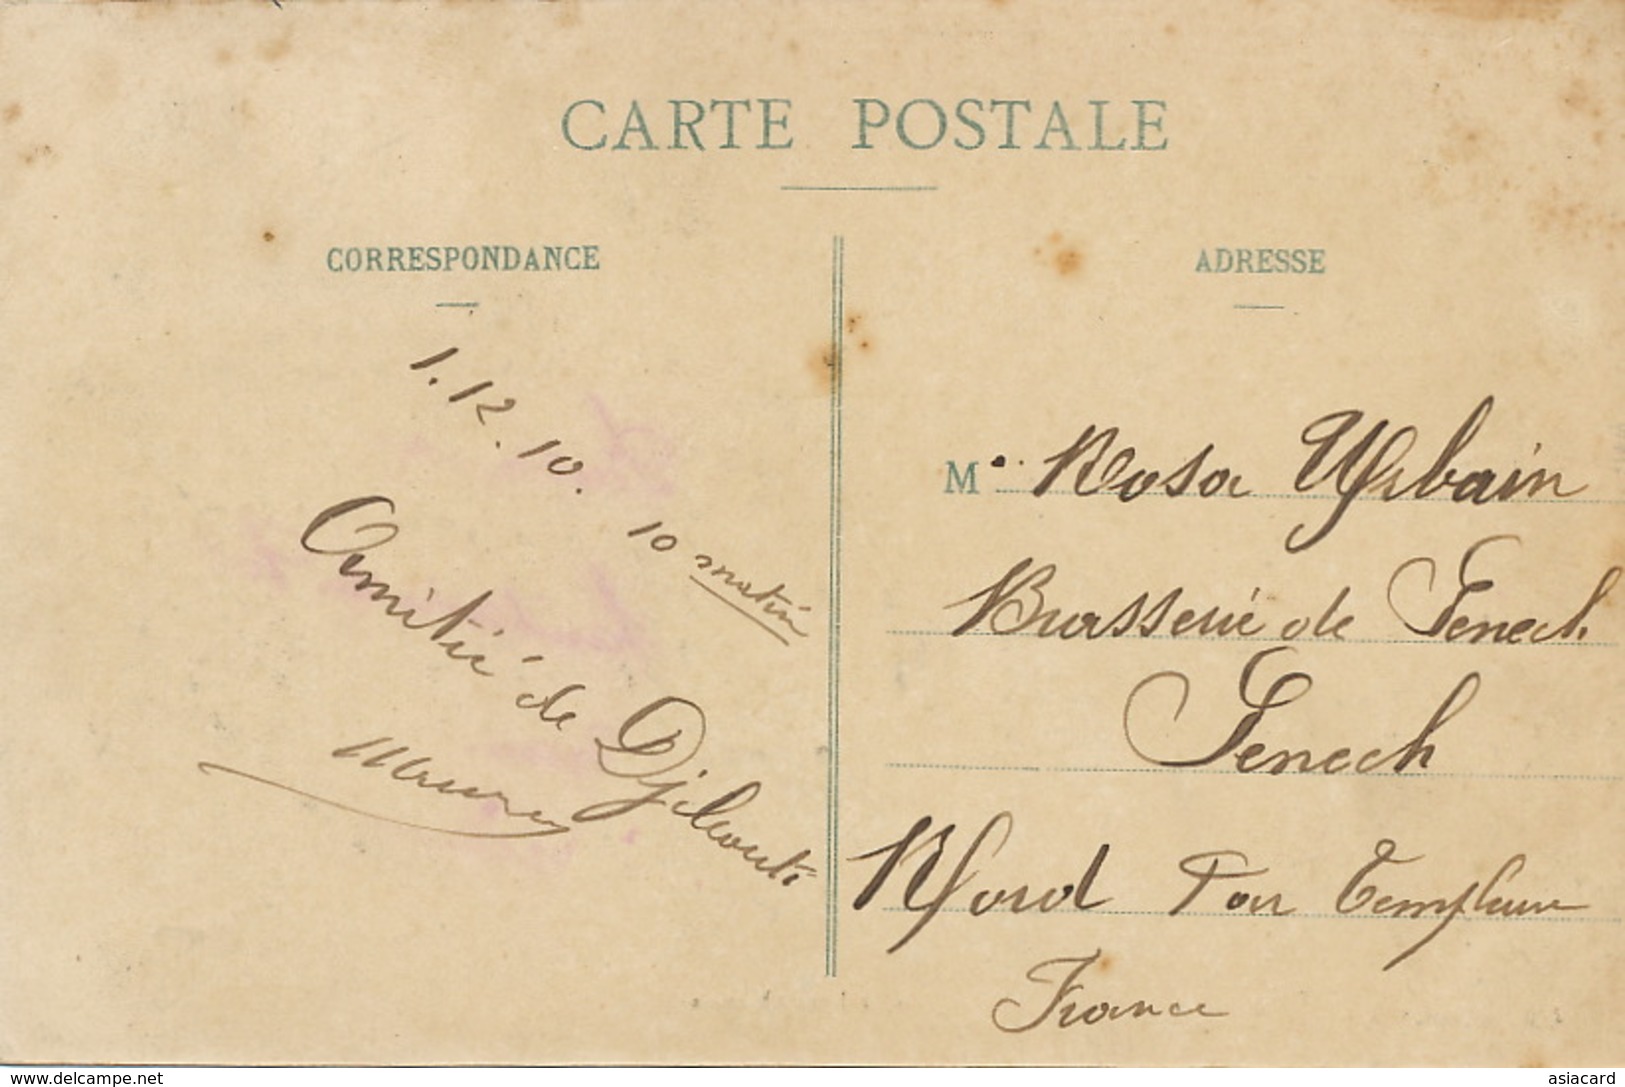 CARTE POSTALE
CORRESPONDANCE
1.12.10. 10 matin
Amitié de Djibouti
ADRESSE
M. Rosa Urbain
Brasserie de Fenech
Fenech
Nord Par Templeuve
France
www.delcampe.net
asiacard